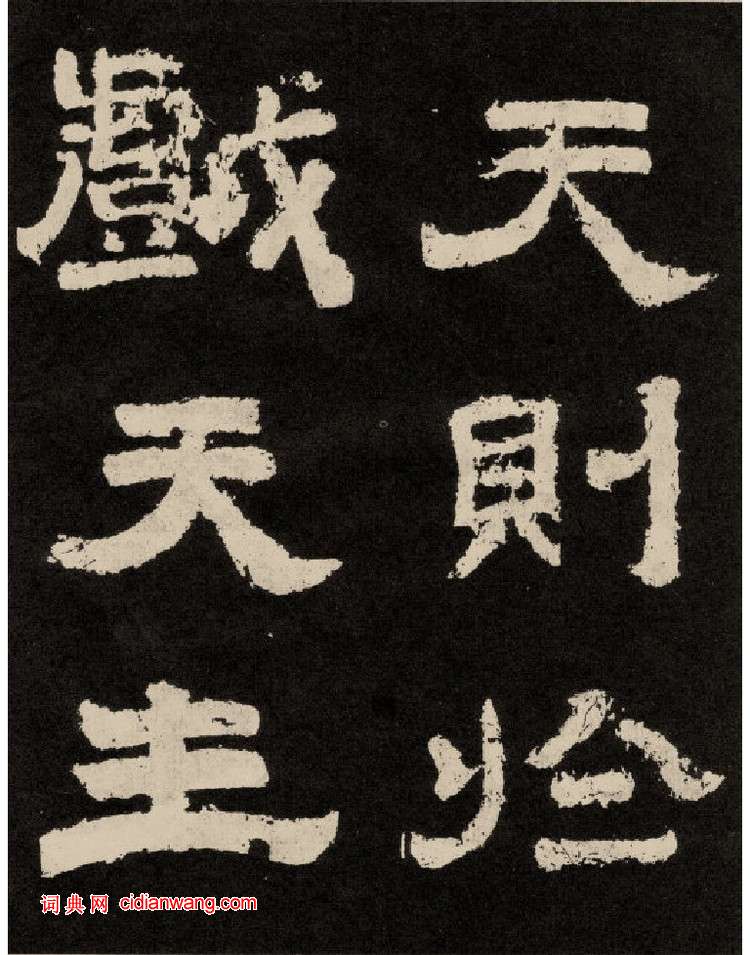 天則於
戲天生
词典网 cidianwang.com